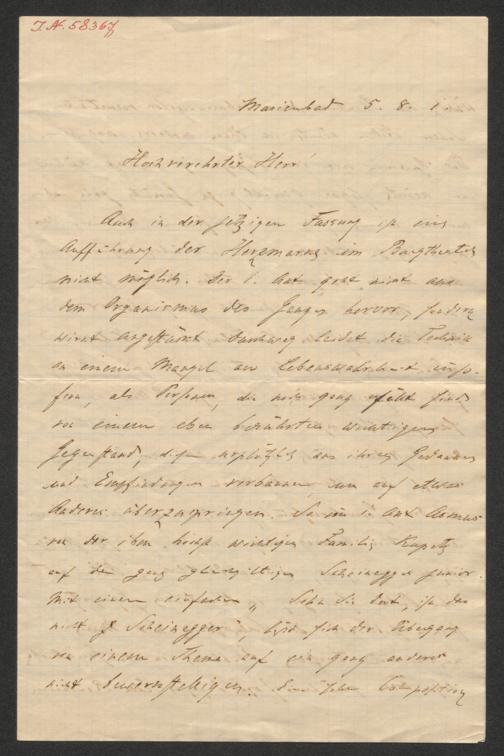 I.N. 58367
Marienbad 5. 8. 1
Hochverehrter Herr!
Auch in der jetzigen Fassung ist eine
Aufführung der Hexemarns im Burgtheater
nicht möglich. Der 1. Akt geht nicht aus
dem Organismus des Ganzen hervor, sondern
wirkt angestückt. Durchweg leidet die Technik
an einem Mangel an Lebenswahrheit inso-
fern, als Personen, die noch ganz erfüllt sind
von einem eben berührten wichtigen
Gegenstand, diesen urplötzlich aus ihren Gedanken
und Empfindungen verbannen um auf etwas
Anderes überzuspringen. So im 1. Akt
von der ihm höchst wichtigen Familie
auf den ganz gleichgiltigen Scheinegger junior.
Mit einem einfachen „Sehn Sie dort, ist das
nicht Scheinegger", läßt sich der Übergang
von einem Thema auf ein ganz anderes
nicht bewerkstelligen. Exposition